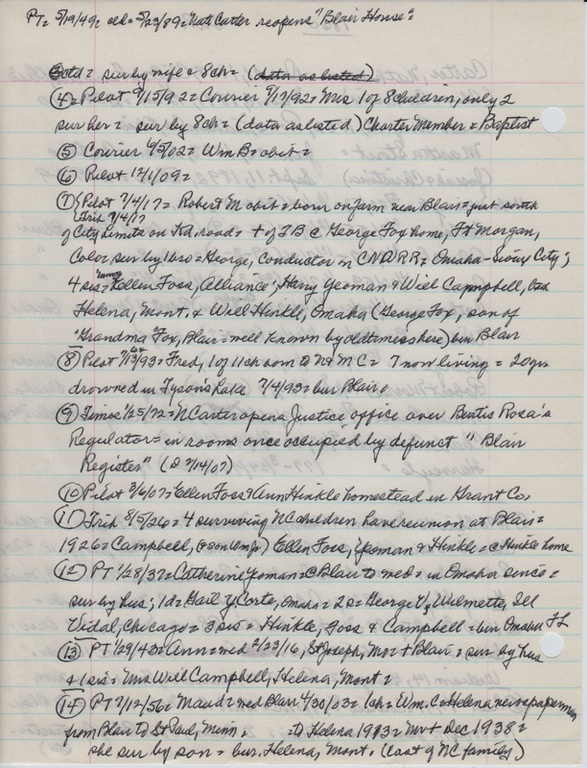 PT= 5/19/49= old= 5/23/89= "Nate Carter reopens "Blair House"=
ctd= sur by wife & 8ch= (data as listed)
④= Pilot 9/15/92= Courier 9/17/92= Mrs 1 of 8 children, only 2
sur her= sur by 8ch= (data as listed) Charter Member= Baptist
⑤ Courier 4/5/02= Wm B= obit=
⑥ Pilot 12/1/09=
⑦ Pilot 7/4/17= Robert M obit= born on farm near Blair= just south
Trib 7/4/17
of City limits on RR road= + of TB @ George Fox home, Ft Morgan,
Colo= sur by 1 bro= George, Conductor on CNWRR= Omaha-Sioux City;
4 sis= Ellen Foss, Alliance; Harry Yeoman & Will Campbell,
Helena, Mont. & Will Hinkle, Omaha (George Fox, son of
"Grandma Fox, Blair= well known by oldtimers here) bur Blair
⑧ Pilot 7/13/93= Fred, 1 of 11ch born to N & M C= 7 now living= 20 yrs
drowned in Tyson's Lake 7/4/93= bur Blair
⑨ Times 1/25/72= N Carter opens Justice office over Rosa's
Regulator= in rooms once occupied by defunct "Blair
Register" (D 2/14/07)
⑩ Pilot 3/6/07= Ellen Foss & Ann Hinkle homestead in Grant Co,
⑪ Trib 8/5/26= 4 surviving NC children have reunion at Blair=
1926= Campbell, Ellen Foss, Yeoman & Hinkle= @ Hinkle home
⑫ PT 1/28/37= Catherine Yoman= @ Blair to med= in Omaha since=
sur by hus; 1d= Gail Y Corte, Omaha= 2s= George Y, Wilmette, Ill
Vidal, Chicago= 3 sis= Hinkle, Foss & Campbell= bur Omaha FL
⑬ PT 1/29/43= Ann= wed 2/23/16, St Joseph, Mo= + Blair= sur by hus
& 1 sis= Mrs Will Campbell, Helena, Mont=
⑭ PT 7/12/56= Maud= wed Blair 4/30/03= 1ch= Wm. C= Helena newspaperman
from Blair to St Paul, Minn= to Helena 1913= Mr + Dec 1938=
she sur by son= bur. Helena, Mont. (last of NC family)